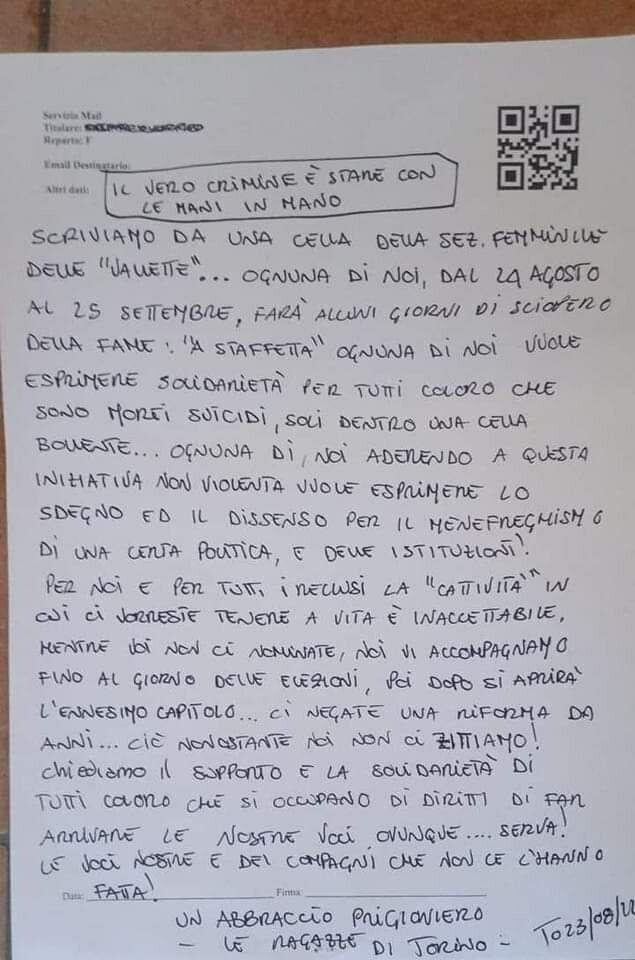 Servizio Mail
Titolare:
Reparto: F
Email Destinatario:
Altri dati:
IL VERO CRIMINE È STARE CON
LE MANI IN MANO
SCRIVIAMO DA UNA CELLA DELLA SEZ. FEMMINILE
DELLE "VALLETTE"... OGNUNA DI NOI, DAL 24 AGOSTO
AL 25 SETTEMBRE, FARÀ ALCUNI GIORNI DI SCIOPERO
DELLA FAME: "A STAFFETTA" OGNUNA DI NOI VUOLE
ESPRIMERE SOLIDARIETÀ PER TUTTI COLORO CHE
SONO MORTI SUICIDI, SOLI DENTRO UNA CELLA
BOLLENTE... OGNUNA DI, NOI ADERENDO A QUESTA
INIZIATIVA NON VIOLENTA VUOLE ESPRIMERE LO
SDEGNO ED IL DISSENSO PER IL MENEFREGHISMO
DI UNA CERTA POLITICA, E DELLE ISTITUZIONI!
PER NOI E PER TUTTI I RECLUSI LA "CATTIVITÀ" IN
CUI CI VORRESTE TENERE A VITA È INACCETTABILE,
MENTRE VOI NON CI NOMINATE, NOI VI ACCOMPAGNAMO
FINO AL GIORNO DELLE ELEZIONI, POI DOPO SI APRIRÀ
L'ENNESIMO CAPITOLO... CI NEGATE UNA RIFORMA DA
ANNI... CIÈ NONOSTANTE NOI NON CI ZITTIAMO!
Chiediamo IL SUPPORTO E LA SOLIDARIETÀ DI
TUTTI COLORO CHE SI OCCUPANO DI DIRITTI DI FAR
ARRIVARE LE NOSTRE VOCI OVUNQUE.... SERVA!
LE VOCI NOSTRE E DEI COMPAGNI CHE NON CE L'HANNO
Data: FATTA! Firma:
UN ABBRACCIO PRIGIONIERO
- LE RAGAZZE DI TORINO - TO 23/08/22